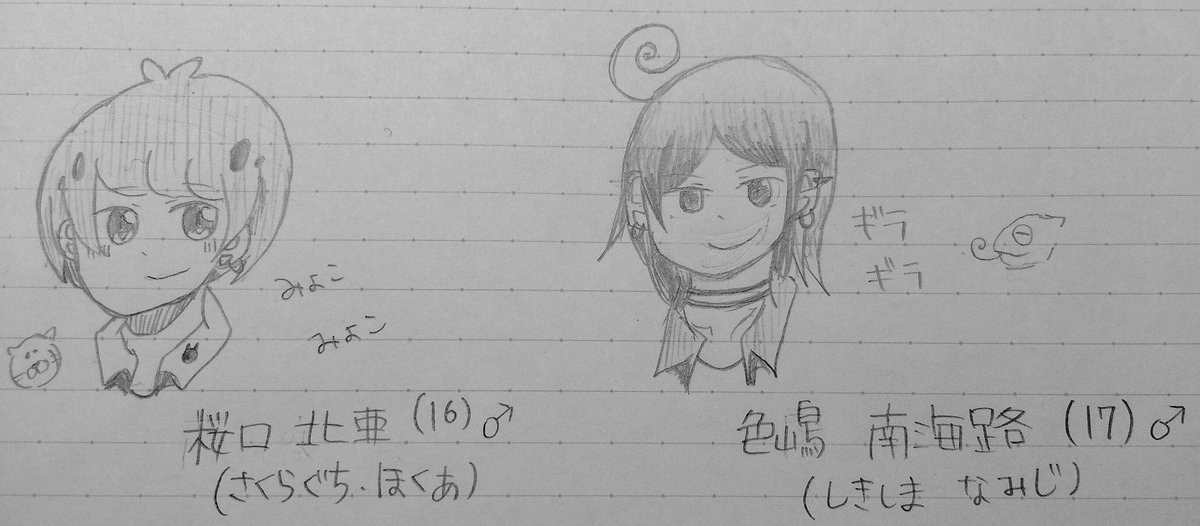 みよこ
みよこ
ギラ
ギラ
桜口 北亜 (16)♂
(さくらぐち・ほくあ)
色嶋 南海路 (17)♂
(しきしま なみじ)